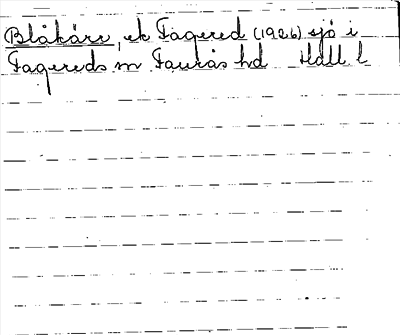 Blåkärr, ek Fagered (1926) sjö i
Fagereds sn Faurås hd Hall l